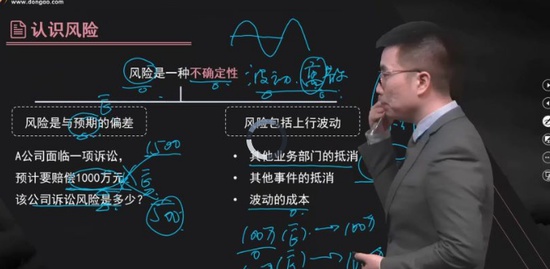 www.dongao.com
认识风险
风险是一种不确定性
波动 离散
风险是与预期的偏差
E
A公司面临一项诉讼，
预计要赔偿1000万元，
该公司诉讼风险是多少？
1500
E
500
风险包括上行波动
• 其他业务部门的抵消
• 其他事件的抵消
• 波动的成本
100万(E) → 100万